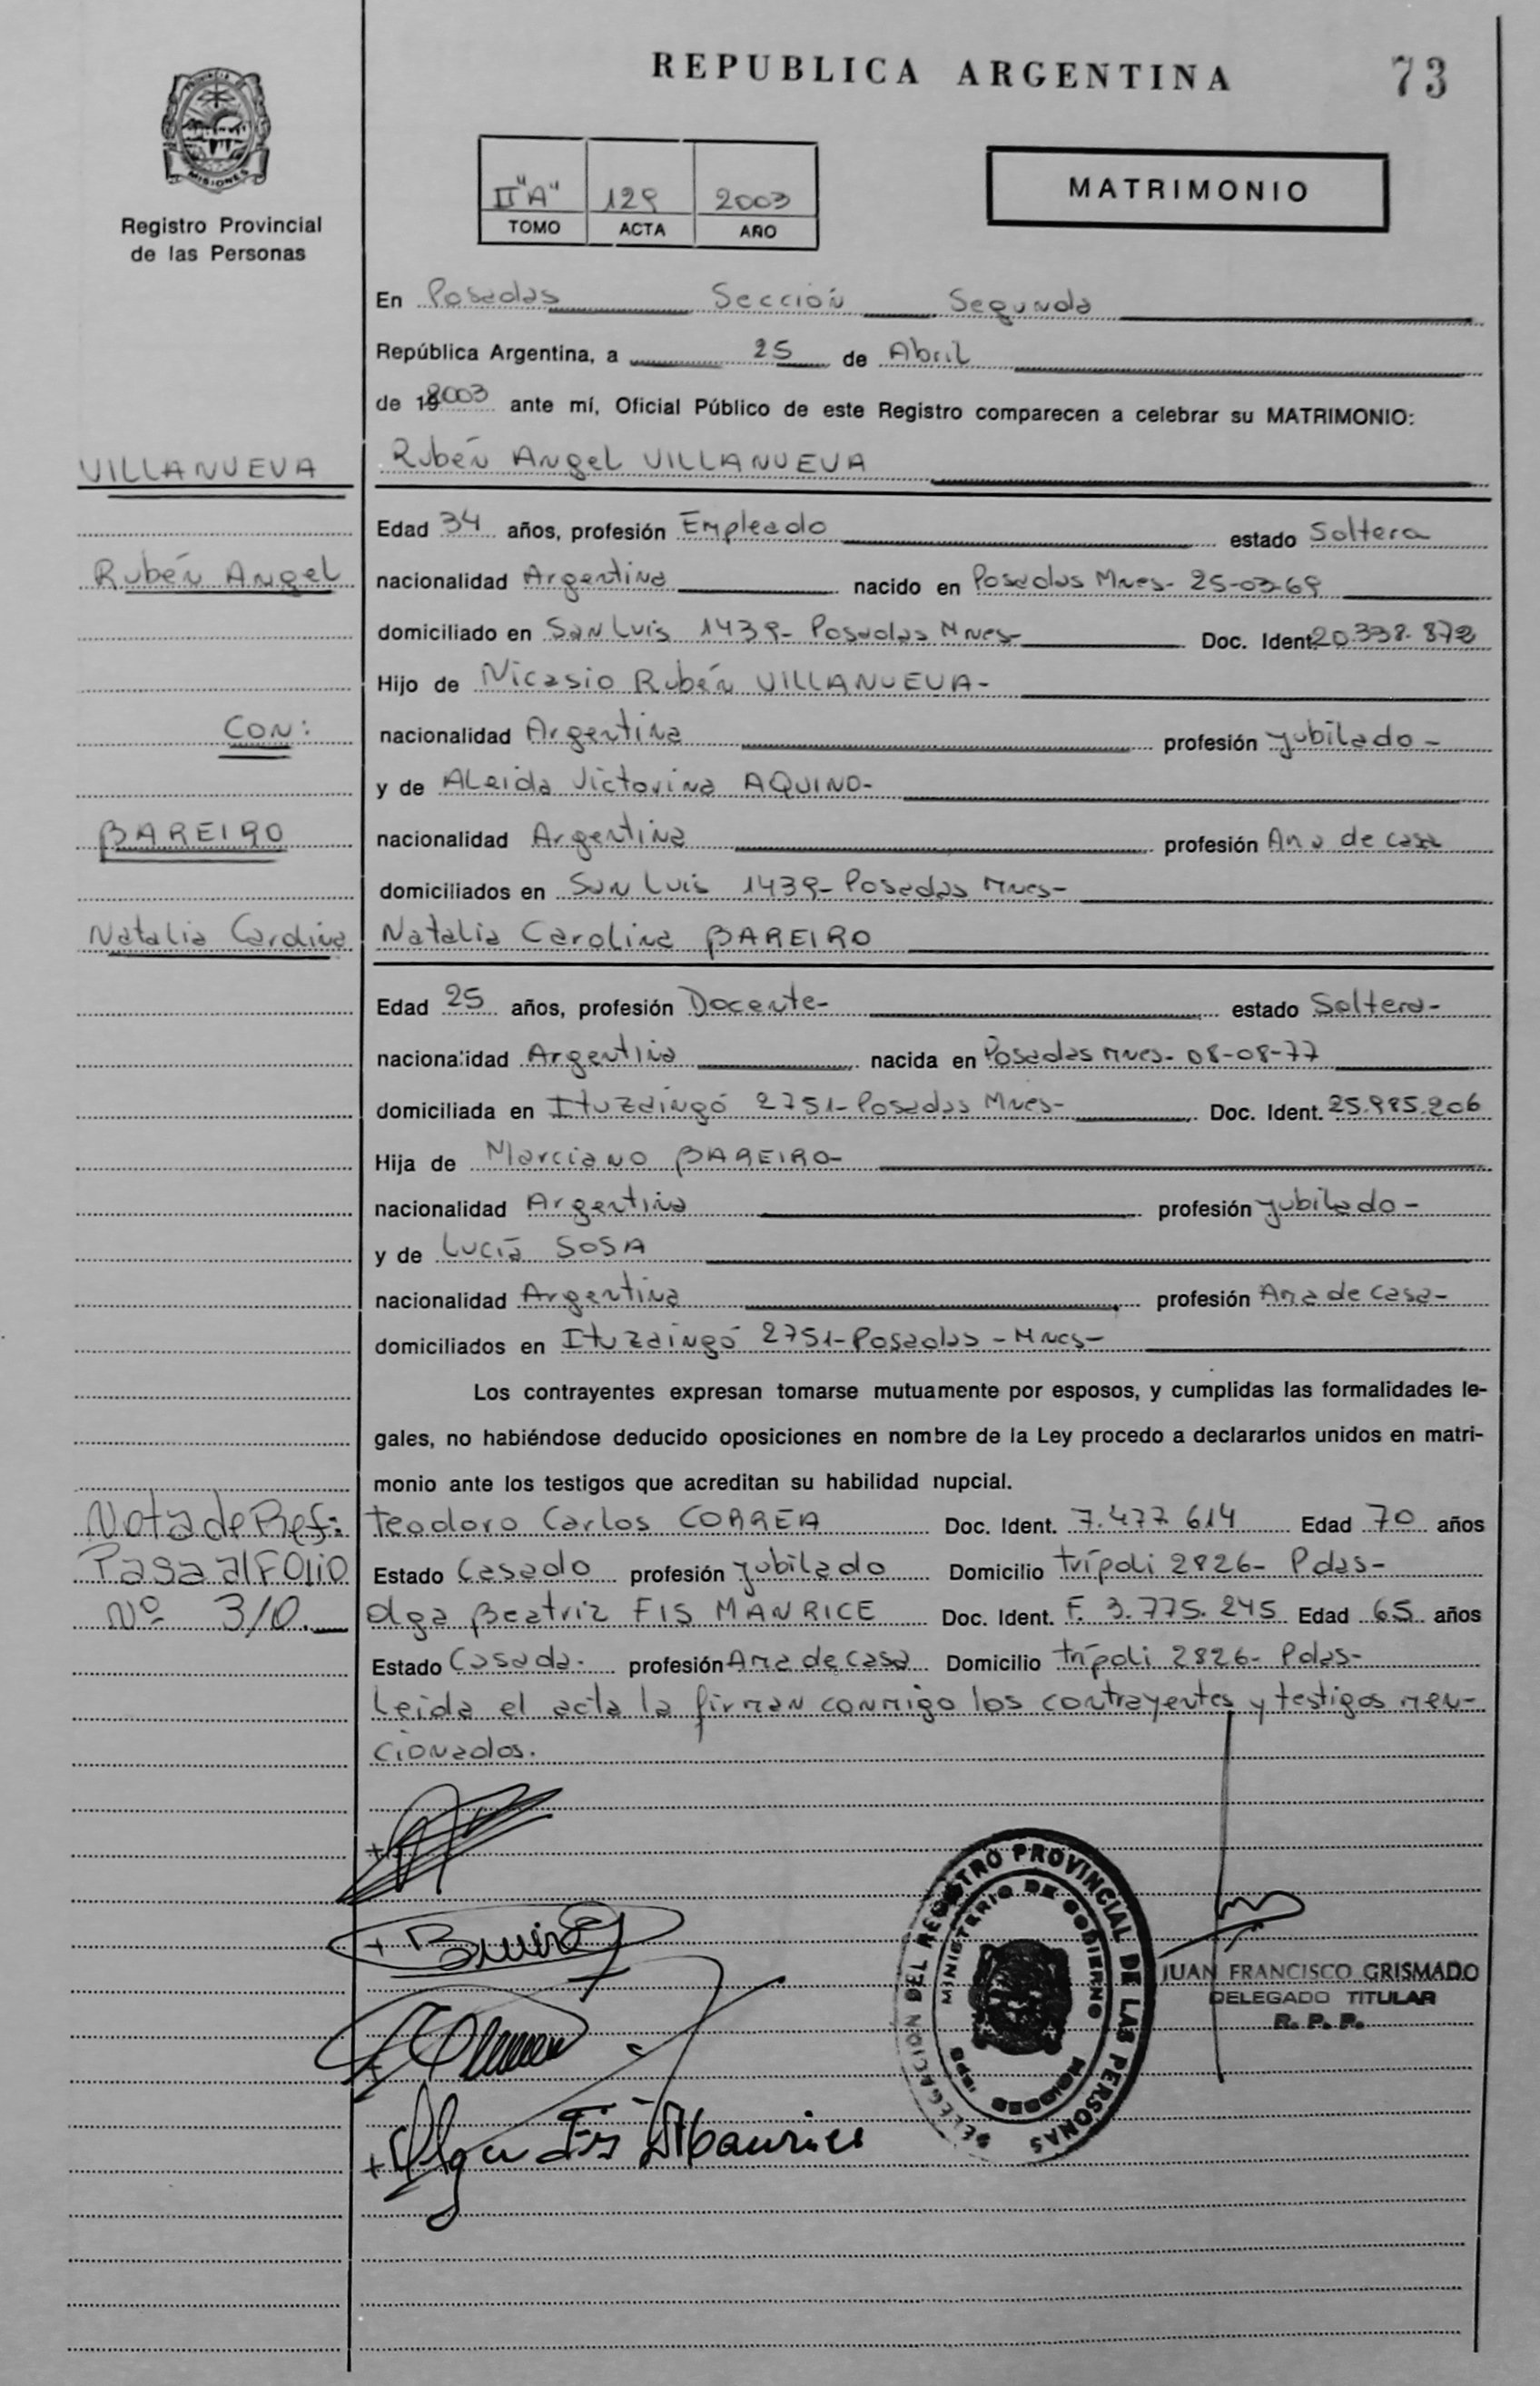 REPUBLICA ARGENTINA
73
MISIONES
Registro Provincial
de las Personas
II "A" 129 2003
TOMO ACTA AÑO
MATRIMONIO
En Posadas Sección Segunda
República Argentina, a 25 de Abril
de 2003 ante mí, Oficial Público de este Registro comparecen a celebrar su MATRIMONIO:
VILLANUEVA
Rubén Angel VILLANUEVA
Edad 34 años, profesión Empleado estado Soltero
Rubén Angel
nacionalidad Argentina nacido en Posadas Mnes- 25-03-69
domiciliado en San Luis 1439- Posadas Mnes- Doc. Ident. 20.338.872
Hijo de Nicasio Rubén VILLANUEVA-
CON:
nacionalidad Argentina profesión Jubilado-
y de Aleida Victorina AQUINO-
BAREIRO
nacionalidad Argentina profesión Ama de casa
domiciliados en San Luis 1439- Posadas Mnes-
Natalia Carolina
Natalia Carolina BAREIRO
Edad 25 años, profesión Docente- estado Soltera-
nacionalidad Argentina nacida en Posadas Mnes- 08-08-77
domiciliada en Ituzaingó 2751- Posadas Mnes- Doc. Ident. 25.985.206
Hija de Marciano BAREIRO-
nacionalidad Argentina profesión Jubilado-
y de Lucía SOSA
nacionalidad Argentina profesión Ama de casa-
domiciliados en Ituzaingó 2751- Posadas - Mnes-
Los contrayentes expresan tomarse mutuamente por esposos, y cumplidas las formalidades le-
gales, no habiéndose deducido oposiciones en nombre de la Ley procedo a declararlos unidos en matri-
monio ante los testigos que acreditan su habilidad nupcial.
Nota de Ref:
Teodoro Carlos CORREA Doc. Ident. 7.477.614 Edad 70 años
Pasa al Folio
Estado Casado profesión Jubilado Domicilio trípoli 2826- Pdas-
Nº 310.
Olga Beatriz FIS MANRICE Doc. Ident. F. 3.775.245 Edad 65 años
Estado Casada- profesión Ama de casa Domicilio trípoli 2826- Pdas-
Leida el acta la firman conmigo los contrayentes y testigos men-
cionados.
DELEGACION DEL REGISTRO PROVINCIAL DE LAS PERSONAS
MINISTERIO DE GOBIERNO
JUAN FRANCISCO GRISMADO
DELEGADO TITULAR
R. P. P.
Olga Fis Maurice